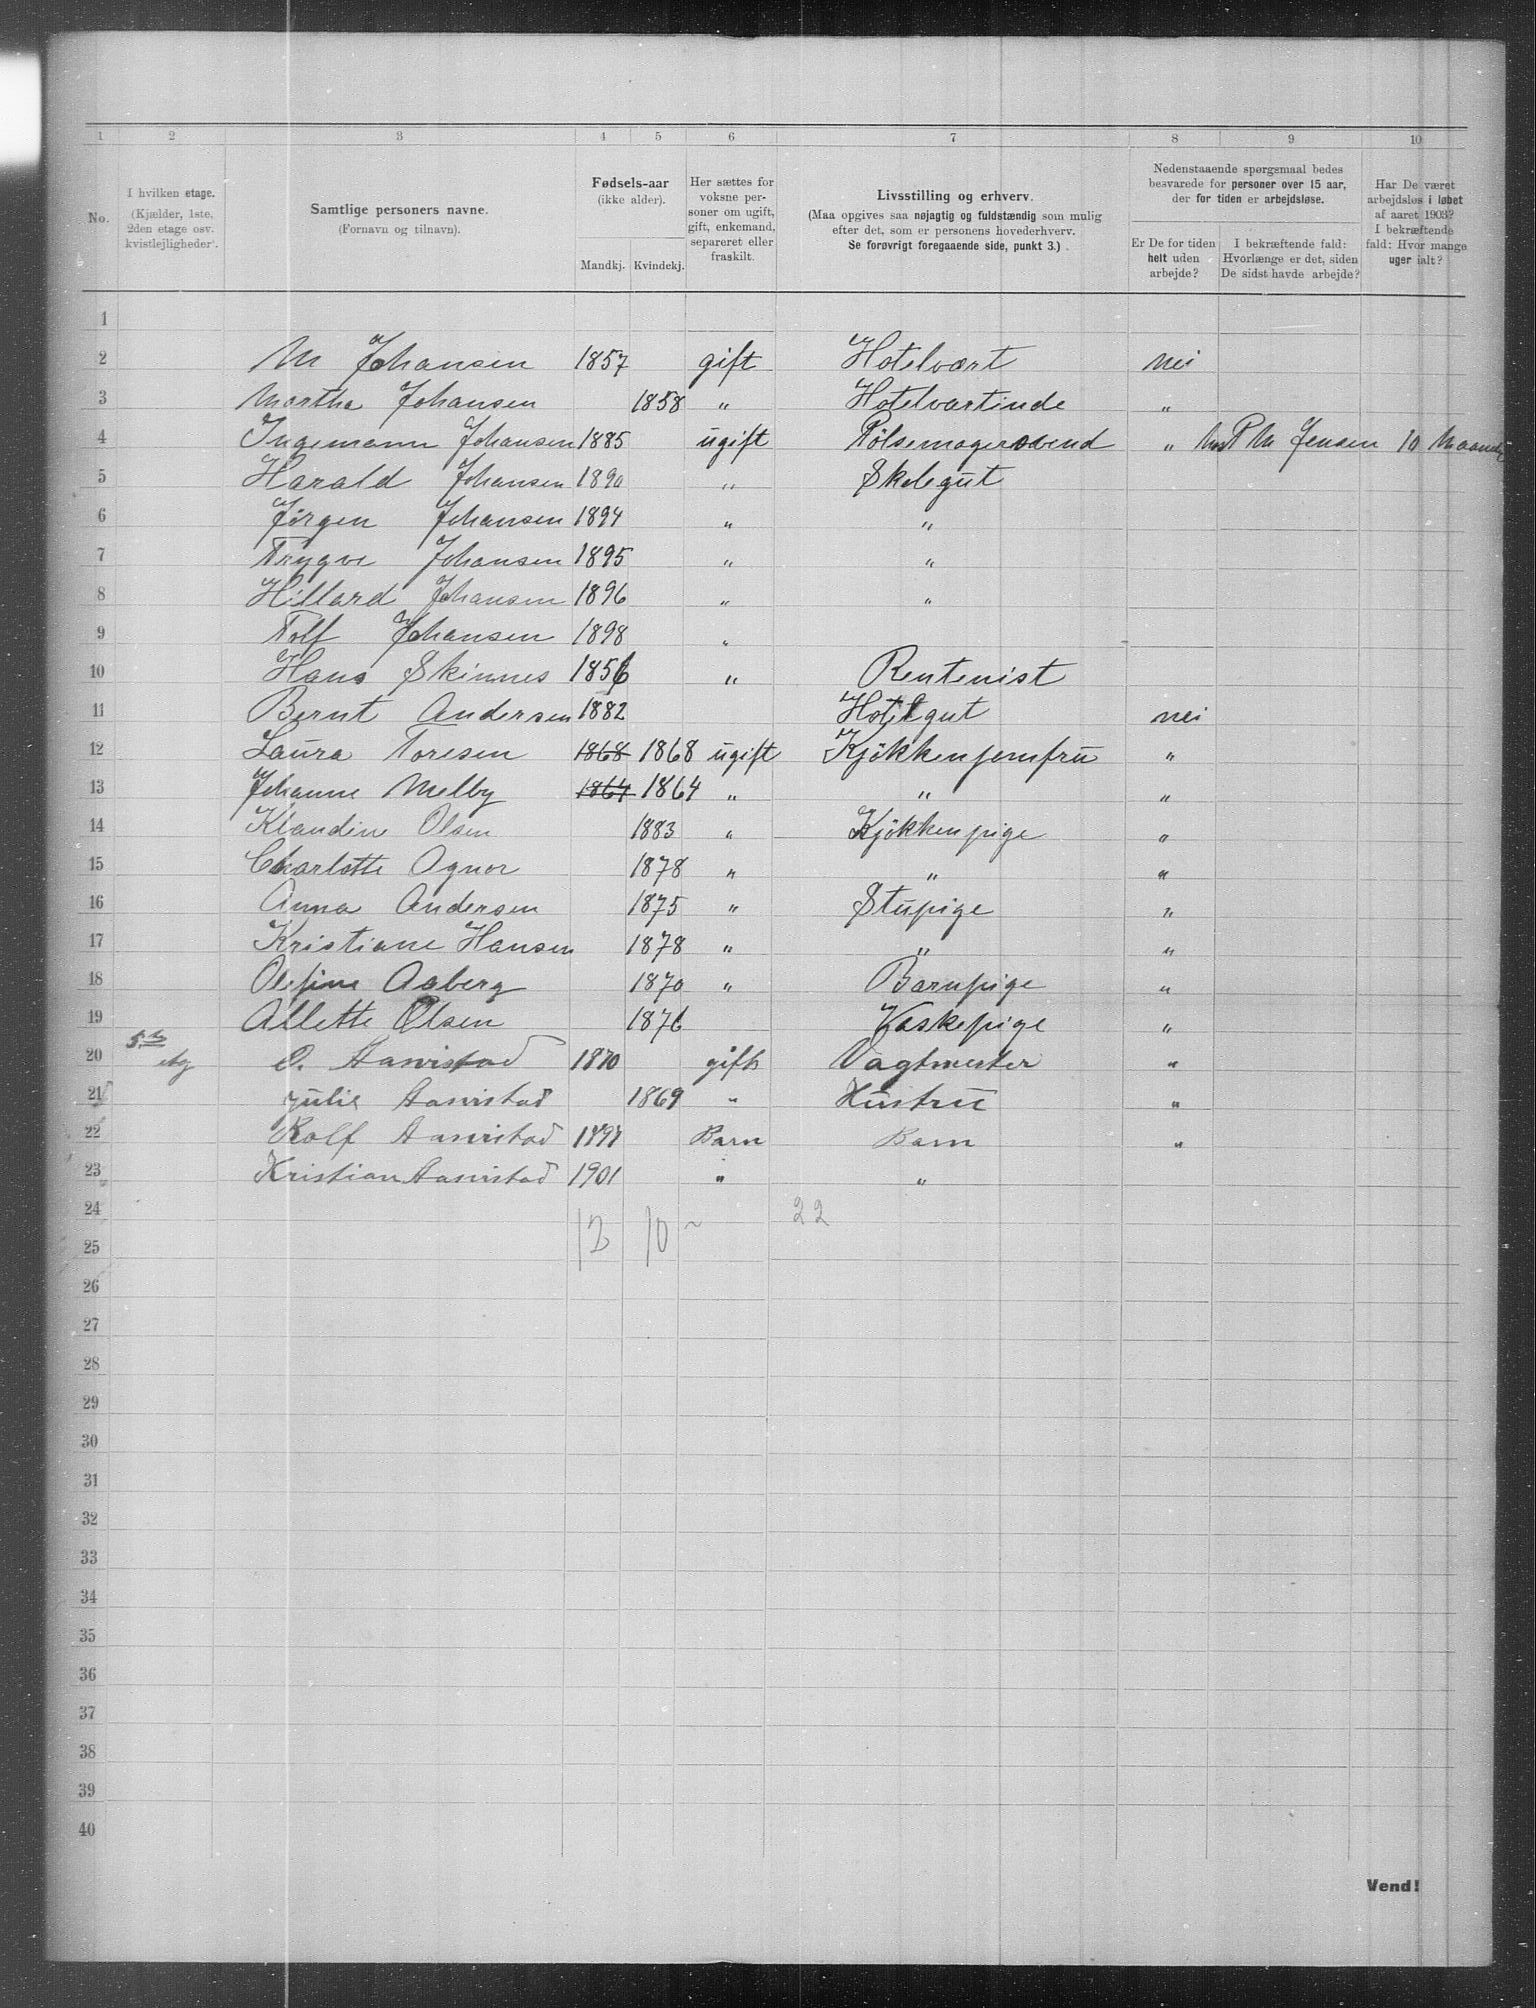 1 2 3 4 5 6 7 8 9 10
No.
I hvilken etage.
(Kjælder, 1ste, 2den etage osv. kvistlejligheder).
Samtlige personers navne.
(Fornavn og tilnavn).
Fødsels-aar
(ikke alder).
Mandkj. Kvindekj.
Her sættes for voksne personer om ugift, gift, enkemand, separeret eller fraskilt.
Livsstilling og erhverv.
(Maa opgives saa nøjagtig og fuldstændig som mulig efter det, som er personens hovederhverv.
Se forøvrigt foregaaende side, punkt 3.)
Nedenstaaende spørgsmaal bedes besvarede for personer over 15 aar, der for tiden er arbejdsløse.
Er De for tiden helt uden arbejde?
I bekræftende fald: Hvorlænge er det, siden De sidst havde arbejde?
Har De været arbejdsløs i løbet af aaret 1903? I bekræftende fald: Hvor mange uger ialt?
1
2 M Johansen 1857 gift Hotelvært nei
3 Martha Johansen 1858 " Hotelvartinde "
4 Ingemann Johansen 1885 ugift Pølsemagersvend " P M Jensen 10 Maaneder
5 Harald Johansen 1890 " Skolegut
6 Jørgen Johansen 1894 " "
7 Trygve Johansen 1895 " "
8 Hillard Johansen 1896 " "
9 Rolf Johansen 1898 "
10 Hans Skinnes 1856 " Rentenist
11 Bernt Andersen 1882 Hotelgut nei
12 Laura Toresen 1868 1868 ugift Kjøkkenjomfru "
13 Johanne Melby 1864 1864 " " "
14 Klaudine Olsen 1883 " Kjøkkenpige "
15 Charlotte Agnor 1878 " " "
16 Anna Andersen 1875 " Stupige "
17 Kristiane Hansen 1878 " " "
18 Olefine Aaberg 1870 " Barnpige "
19 Allette Olsen 1876 Vaskepige "
20 5te etg O. 1870 gift Vagtmester "
21 Julie 1869 " Hustru "
22 Rolf Barn Barn "
23 Kristian 1901 " "
24 12 10 22
25
26
27
28
29
30
31
32
33
34
35
36
37
38
39
40
Vend!